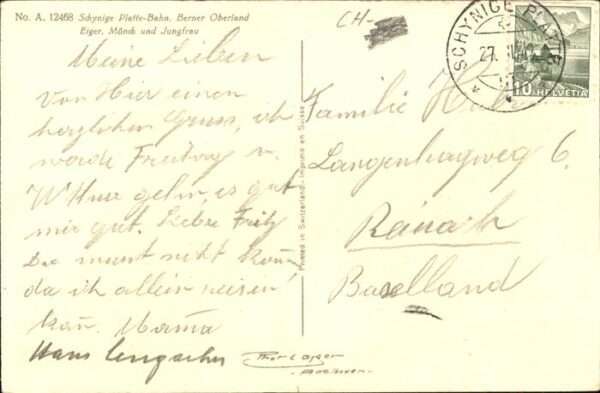 No. A. 12468 Schynige Platte-Bahn. Berner Oberland
Eiger, Mönch und Jungfrau
Meine Lieben
Von Hier einen
herzlichen Gruss, ich
werde Freitag n.
gehn, es gut
mir gut. Liebe Fritz
Du must nicht kom̄
da ich allein reisen
kan̄. Mama
Hans
Printed in Switzerland - Imprimé en Suisse
CH-
SCHYNIGE PLATTE
27.
10 HELVETIA
Familie
Langenhagweg 6.
Reinach
Baselland